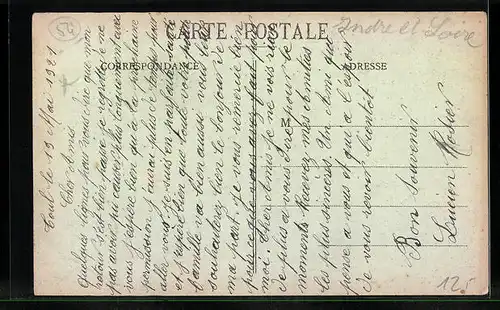 CARTE POSTALE
Indre et Loire
CORRESPONDANCE
ADRESSE
M
Toul le 19 Mai 1921
Cher Amis
Quelques lignes pour vous dire que mon
retour s'est bien passé je regrette je ne
pas avoir pu causer plus longuement avec
vous j'espère bien qu'à la prochaine
permission j'aurai plus de temps pour
aller vous je suis en parfaite santé
et j'espère bien que toute votre petite
famille va bien aussi vous leurs
souhaiterez bien le bonjour de
ma part. Je vous remercie bien
pour ce que vous avez fait pour
moi. Cher Amis je ne vois rien
de plus a vous dire pour le
moments Recevez mes Amitiés
les plus sincères. Ton Ami qui
pense a vous et qui a l'espoir
de vous revoir bientot
Bon Souvenir
Lucien
125